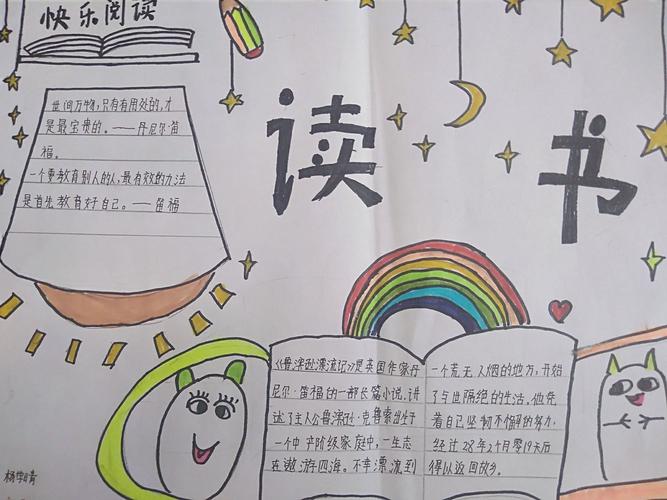 快乐阅读
读书
世间万物，只有有用处的，才
是最宝贵的。——丹尼尔笛
福。
一个要教育别人的人，最有效的办法
是首先教育好自己。——笛福
《鲁滨逊漂流记》是英国作家丹
尼尔·笛福的一部长篇小说。讲
述了主人公鲁滨逊·克鲁索出生于
一个中产阶级家庭中，一生志
在遨游四海。不幸漂流到
一个荒无人烟的地方，开始
了与世隔绝的生活。他凭
着自己坚韧不懈的努力，
经过28年2个月零19天后
得以返回故乡。